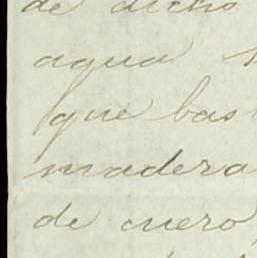 de dicho
agua
que bas
madera
de cuero